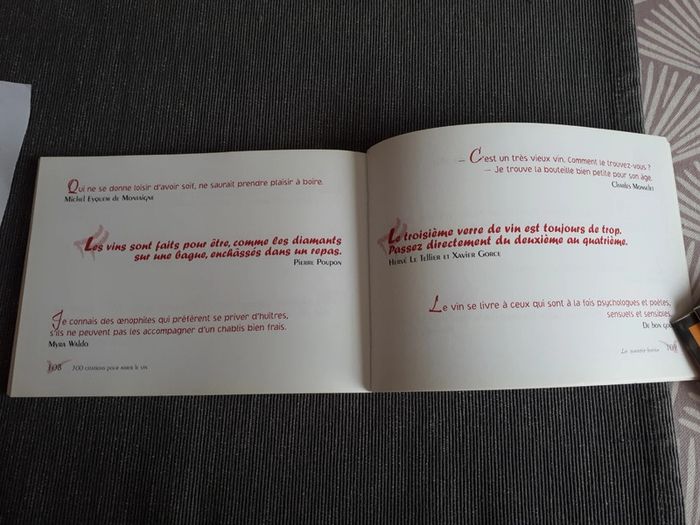 Qui ne se donne loisir d'avoir soif, ne saurait prendre plaisir à boire.
Michel Eyquem de Montaigne
Les vins sont faits pour être, comme les diamants
sur une bague, enchâssés dans un repas.
Pierre Poupon
Je connais des œnophiles qui préfèrent se priver d'huîtres,
s'ils ne peuvent pas les accompagner d'un chablis bien frais.
Myra Waldo
108 300 citations pour aimer le vin
– C'est un très vieux vin. Comment le trouvez-vous ?
– Je trouve la bouteille bien petite pour son âge.
Charles Monselet
Le troisième verre de vin est toujours de trop.
Passez directement du deuxième au quatrième.
Hervé Le Tellier et Xavier Gorce
Le vin se livre à ceux qui sont à la fois psychologues et poètes,
sensuels et sensibles.
De bon
Le savoir-boire 109